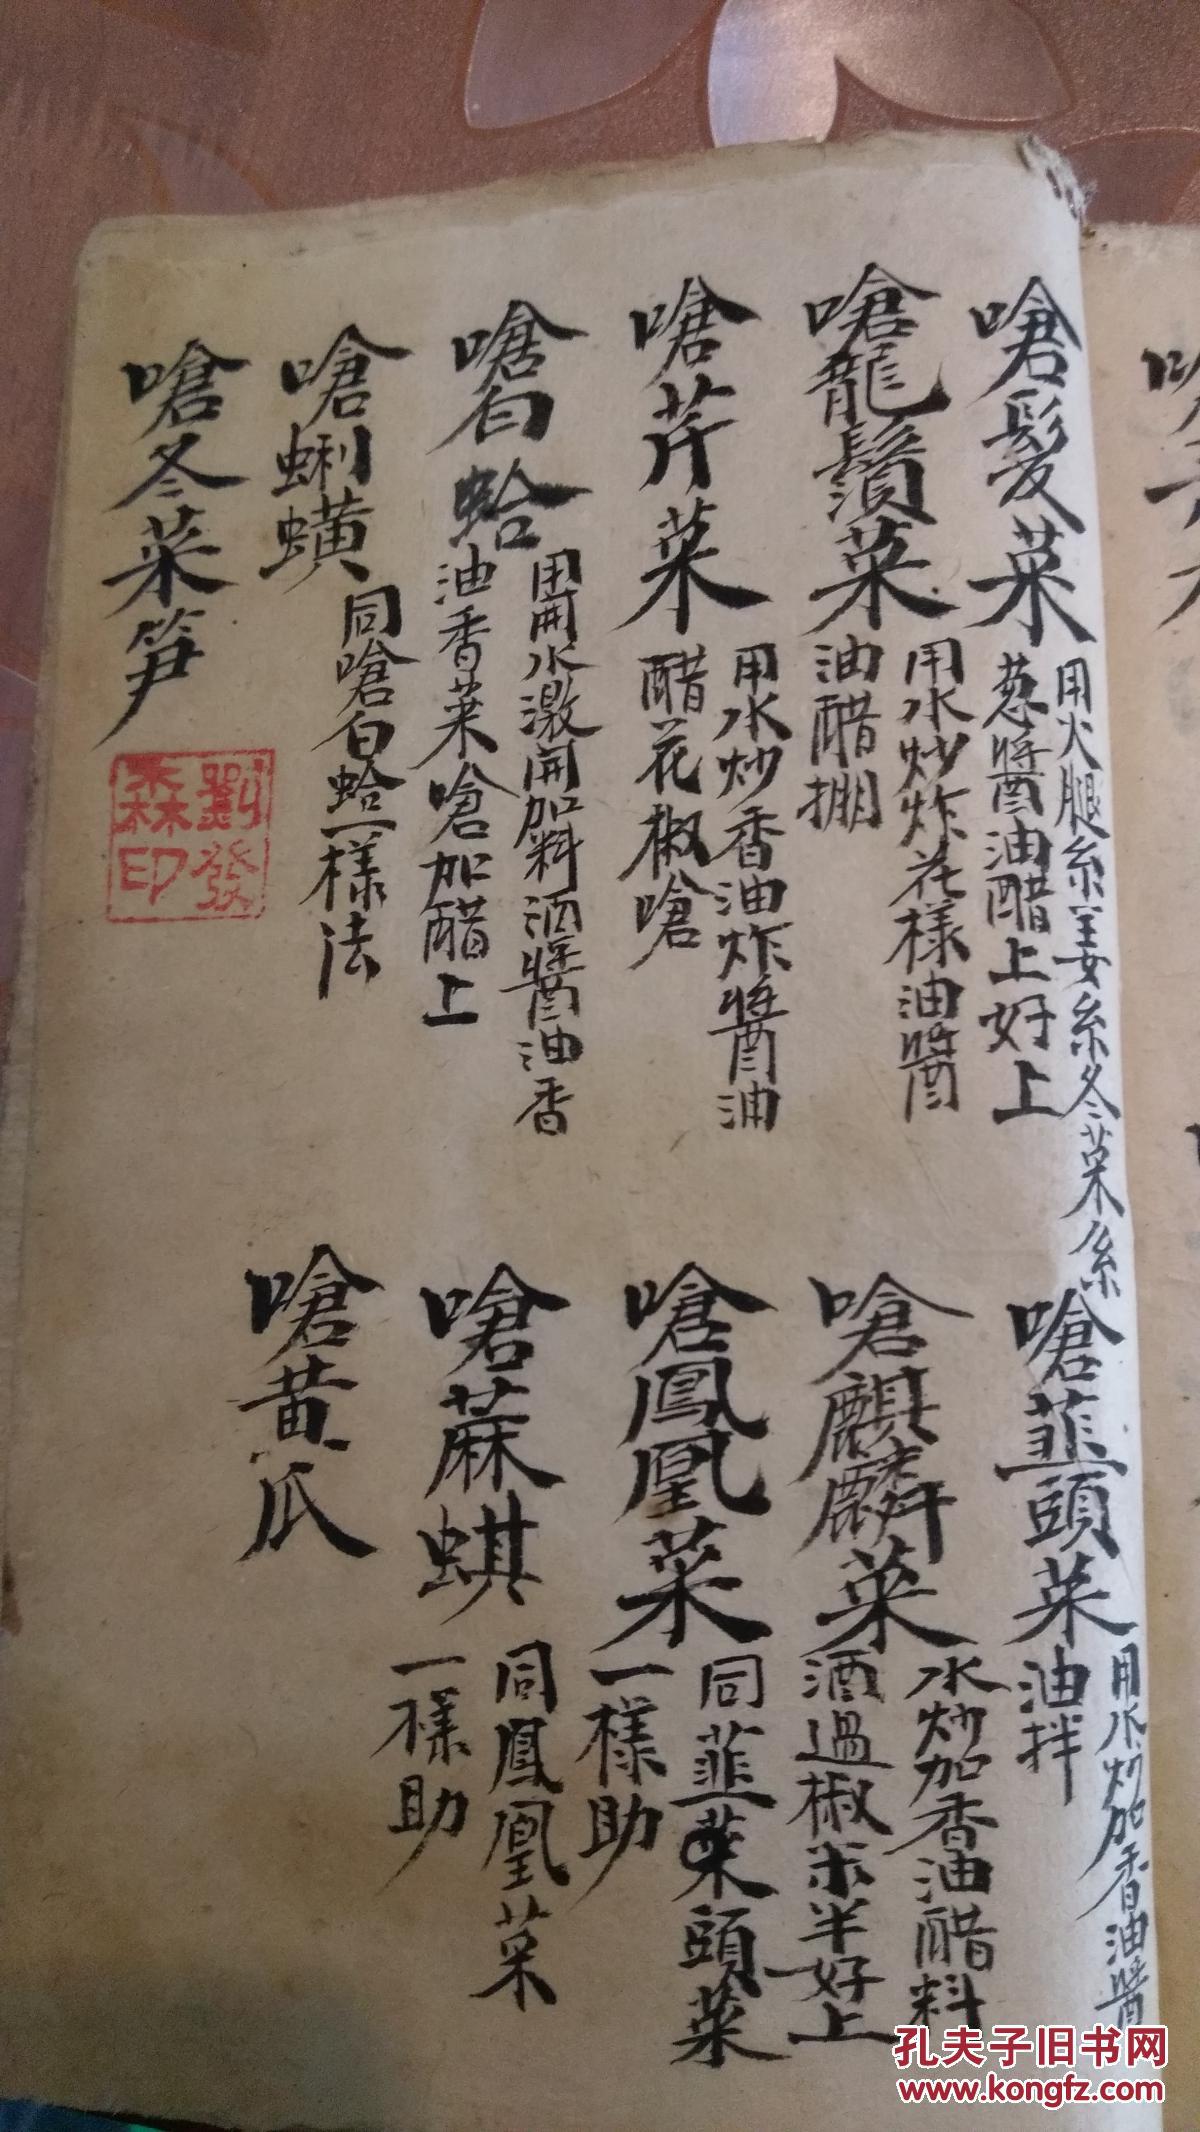 嗆髮菜
用火腿糸姜糸冬菜糸
葱醬油醋上好上
嗆龍鬚菜
用水炒炸花樣油醬
油醋掤
嗆芹菜
用水炒香油炸醬油
醋花椒嗆
嗆白蛤
用開水激開加料酒醬油香
油香菜嗆加醋上
嗆蜊蟥
同嗆白蛤一樣法
嗆冬菜笋
劉發
森印
嗆韮頭菜
用水炒加香油醬
油拌
嗆麒麟菜
水炒加香油醋料
酒過椒米半好上
嗆鳳凰菜
同韮菜頭菜
一樣助
嗆蔴蜞
同鳳凰菜
一樣助
嗆黄瓜
孔夫子旧书网
www.kongfz.com